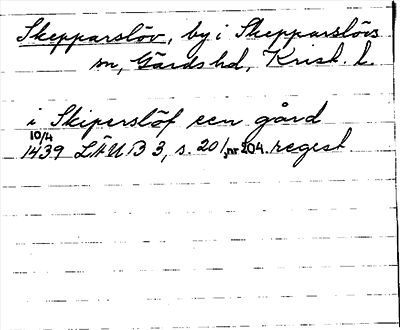 Skepparslöv, by i Skepparslövs
sn, Gärds hd, Krist. l.
i Skiperslöf een gård
10/4
1439 LÄUB 3, s. 201, nr 204. regest.